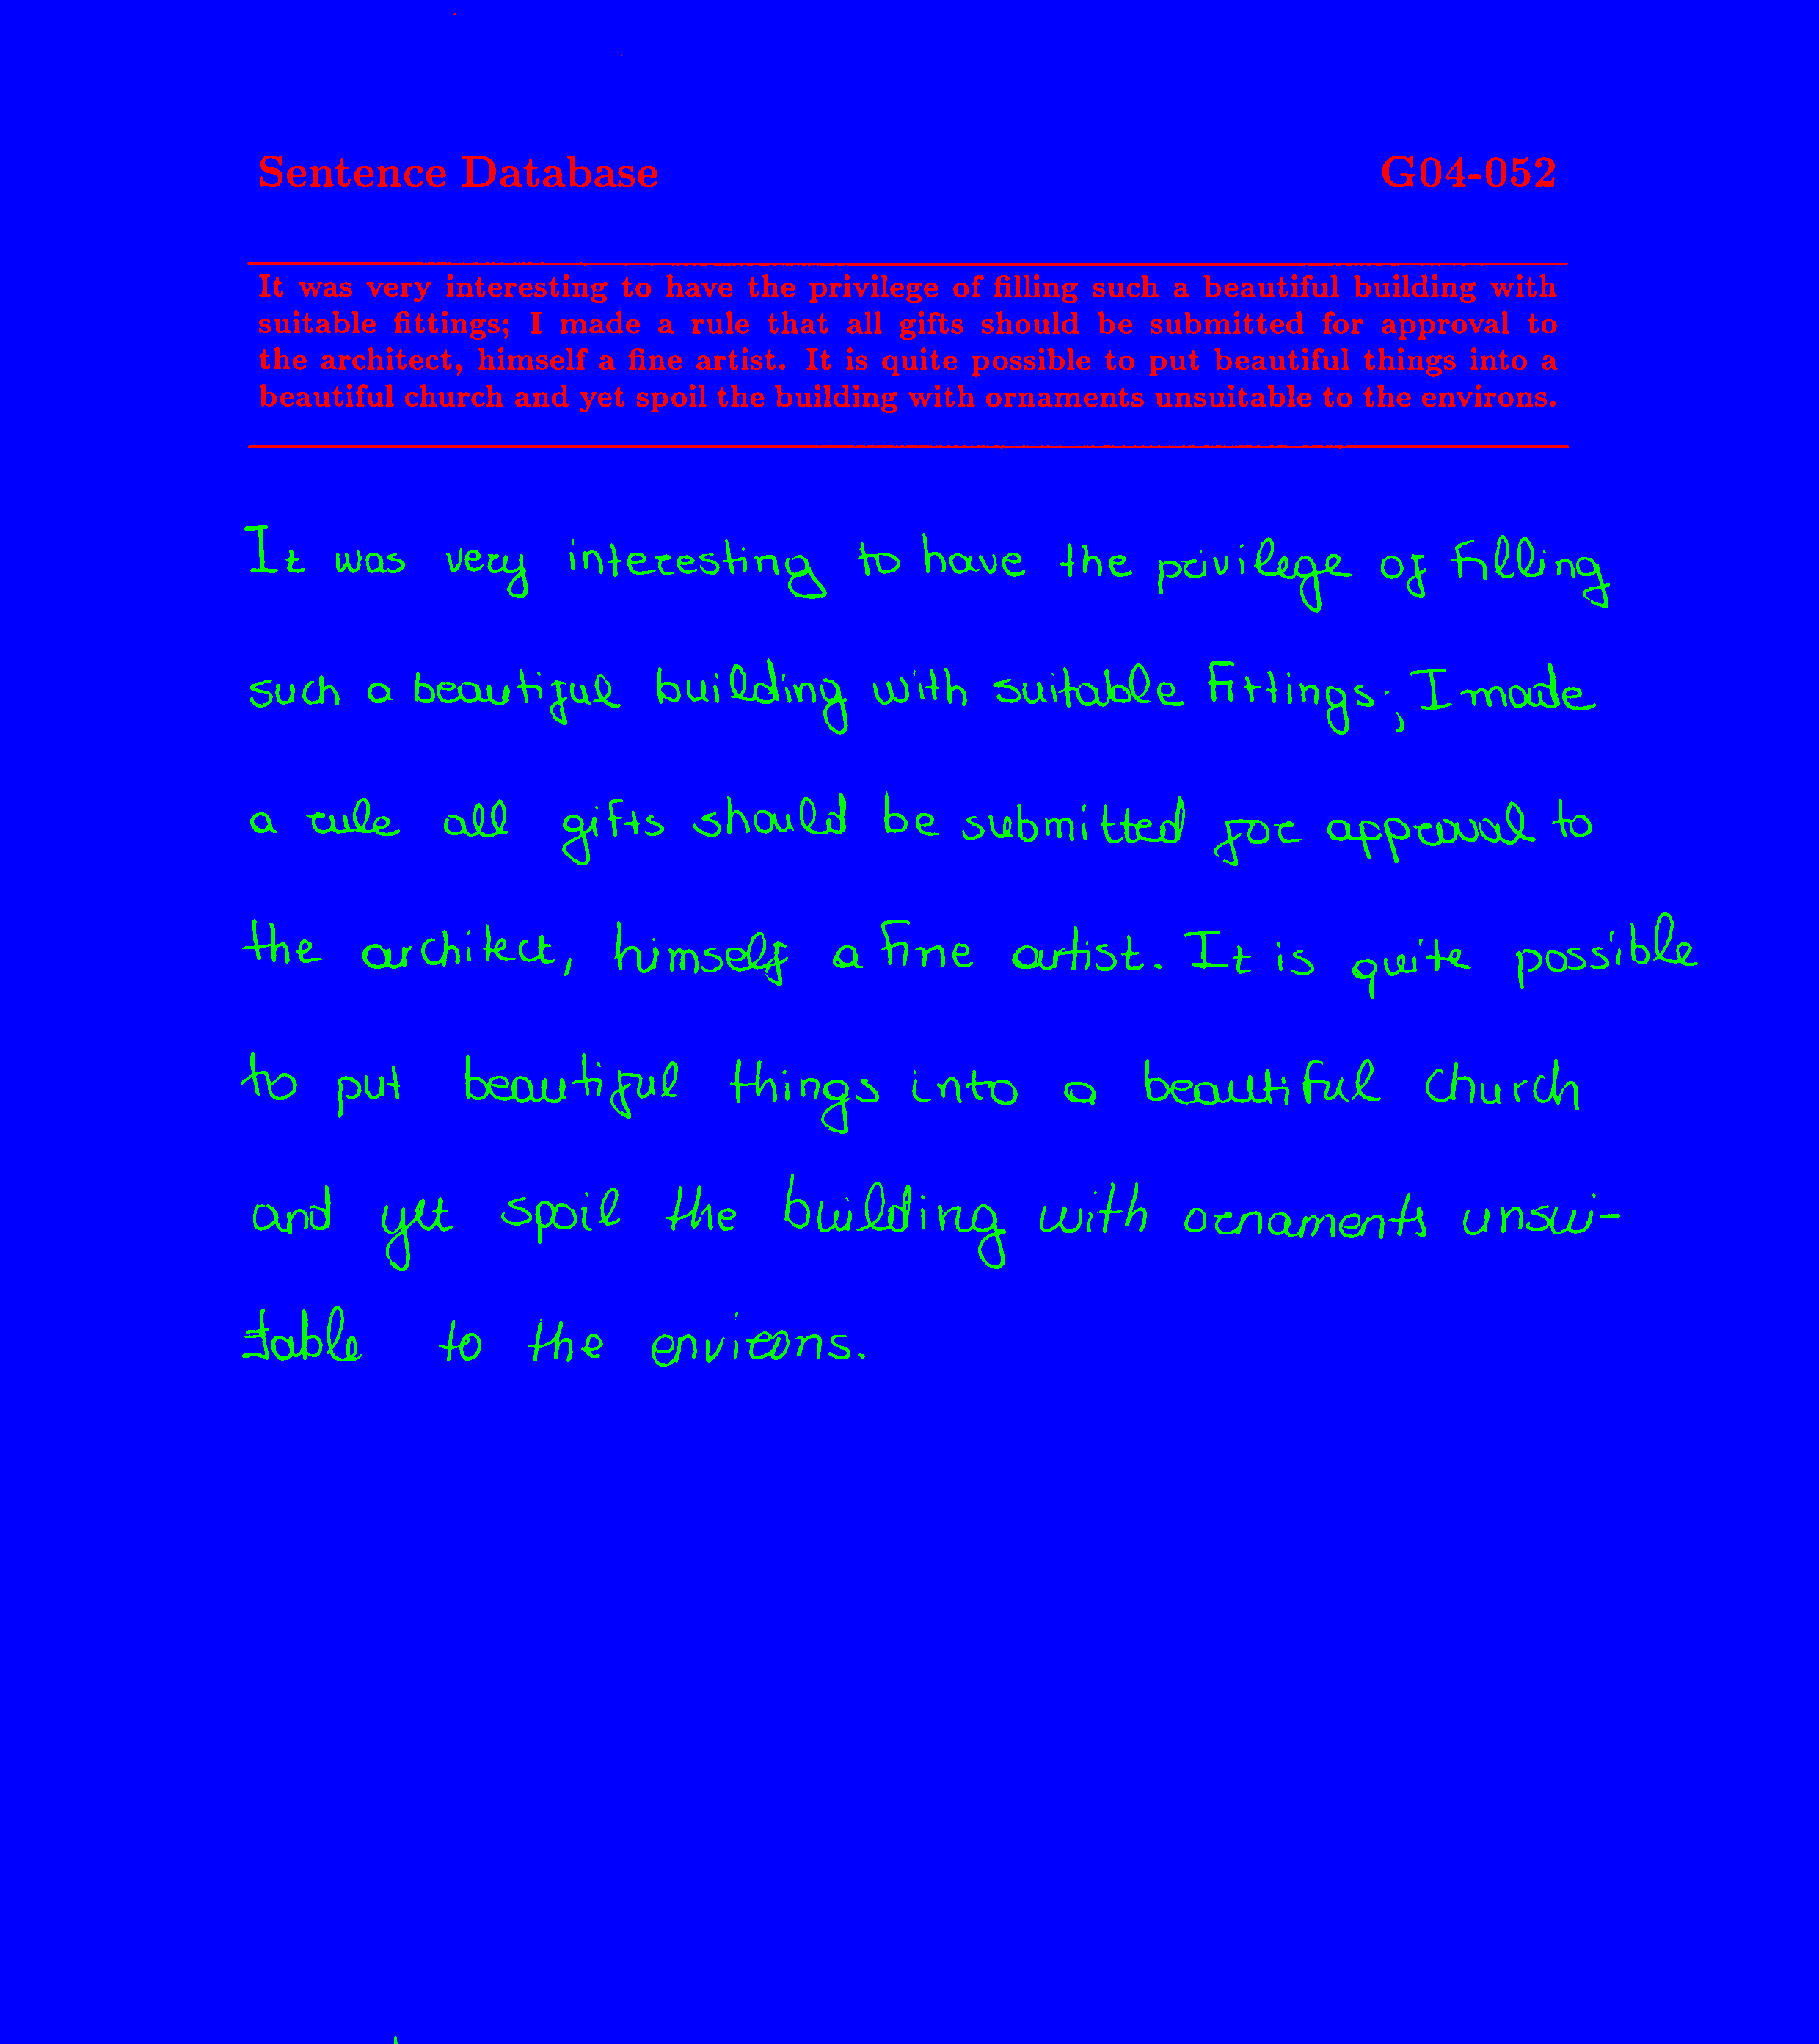 Sentence Database G04-052
It was very interesting to have the privilege of filling such a beautiful building with
suitable fittings; I made a rule that all gifts should be submitted for approval to
the architect, himself a fine artist. It is quite possible to put beautiful things into a
beautiful church and yet spoil the building with ornaments unsuitable to the environs.
It was very interesting to have the privilege of filling
such a beautiful building with suitable fittings; I made
a rule all gifts should be submitted for approval to
the architect, himself a fine artist. It is quite possible
to put beautiful things into a beautiful church
and yet spoil the building with ornaments unsui-
table to the environs.